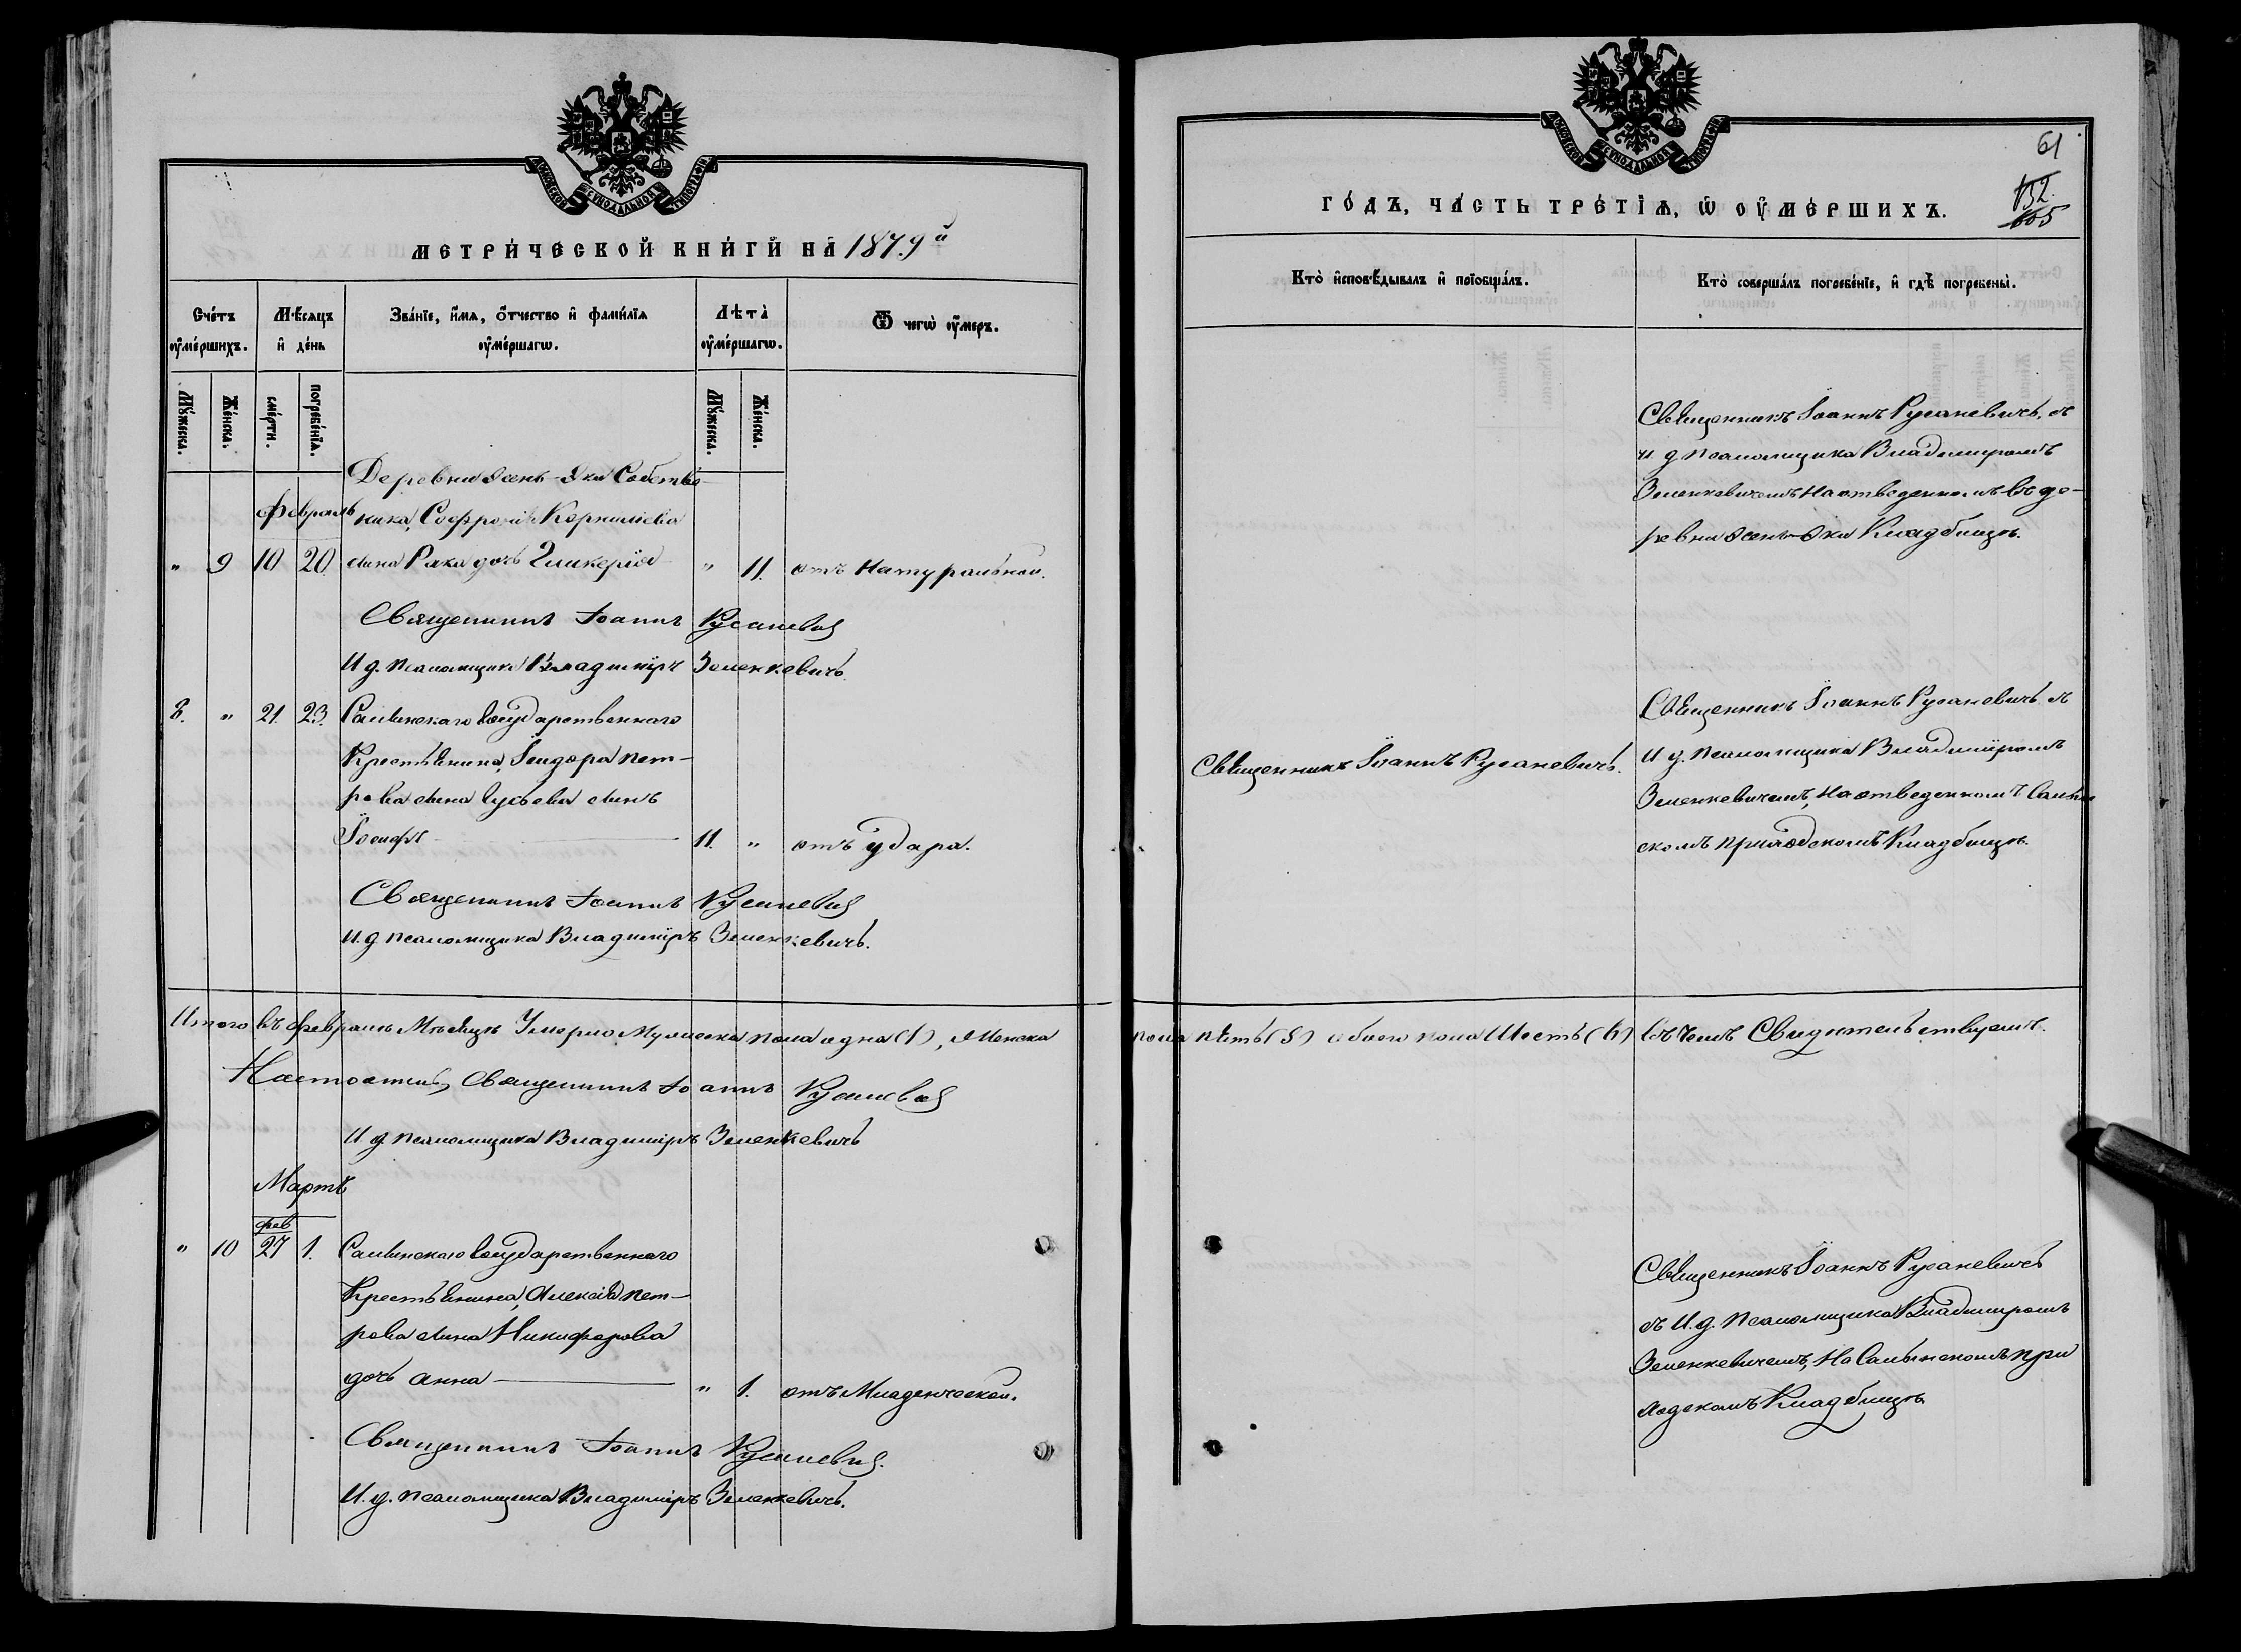 МОСКОВСКОЙ СѴНОДАЛЬНОЙ ТИПОГРАФІИ
МЕТРИ́ЧЕСКОЙ КНИ́ГИ НА̀ 1879й
Сче́тъ оу҆ме́ршихъ.
Мѣ́сяцъ и҆ де́нь
Зва́нїе, и҆́мѧ, о҆́тчество и҆ фами́лїѧ оу҆ме́ршагѡ.
Лѣ̀та̀ оу҆ме́ршагѡ.
Ѿ чегѡ̀ оу҆́меръ.
Мꙋ́жеска.
Же́нска.
сме́рти.
погребе́нїѧ.
Мꙋ́жеска.
Же́нска.
Февраль
Деревни Ясенъ-Яки Собстве-
ника, Софронія Корниліева
" 9 10 20 сына Рака дочь Гликерія " 11. отъ Натуральной.
Священникъ Іоаннъ Русаневич
И д. псаломщика Владиміръ Зеленкевичъ.
8. " 21. 23. Государственнаго
Крестьянина, Ісидора Пет-
рова сына Гусьева сынъ
Іосифъ 11. " отъ удара.
Священникъ Іоаннъ Русаневич
И. д. псаломщика Владиміръ Зеленкевичъ.
Итого въ Февралѣ Мѣсяцѣ Умерло Мужеска пола одна (1), Женска
Настоятель, Священникъ Іоаннъ Русаневич
И. д. псаломщика Владиміръ Зеленкевичъ
Мартъ
фев
" 10 27 1. Государственнаго
Крестьянина, Алексія Пет-
рова сына Никифорова
дочь Анна " 1. отъ Младенческой.
Священникъ Іоаннъ Русаневич.
И. д. псаломщика Владиміръ Зеленкевичъ.
МОСКОВСКОЙ СѴНОДАЛЬНОЙ ТИПОГРАФІИ
61
152.
165
ГО́ДЪ, ЧА́СТЬ ТРЕ́ТЇѦ, Ѡ҆ ОУ҆МЕ́РШИХЪ.
Кто̀ и҆сповѣ́дывалъ и҆ прїобща́лъ.
Кто̀ соверша́лъ погребе́нїе, и҆ гдѣ̀ погребены̀.
Священникъ Іоаннъ Русаневичъ, съ
и. д псаломщика Владиміромъ
Зеленкевичемъ на отведенномъ въ де-
ревни Ясенъ-Яки Кладбищѣ.
Священникъ Іоаннъ Русаневичъ.
Священникъ Іоаннъ Русаневичъ съ
И д. псаломщика Владиміромъ
Зеленкевичемъ, на отведенномъ
скомъ приходскомъ Кладбищѣ.
пола пять (5) обоего пола Шесть (6) въ чемъ Свидѣтельствуемъ.
Священникъ Іоаннъ Русаневичъ
съ И. д. псаломщика Владиміромъ
Зеленкевичемъ, на при
ходскомъ Кладбищѣ